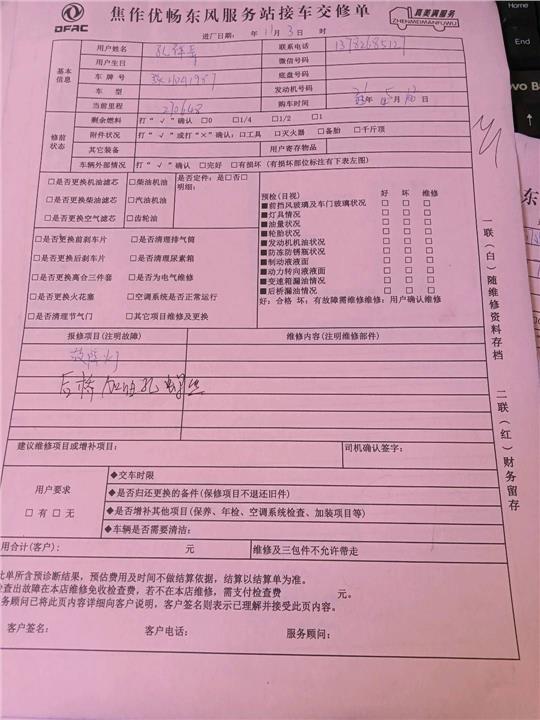 焦作优畅东风服务站接车交修单
DFAC
真美满服务
ZHENMEIMANFUWU
进厂日期： 年 11 月 3 日 时
基本信息
用户姓名
联系电话
用户生日
微信号码
车牌号
底盘号码
车型
发动机号码
当前里程 210643
购车时间 年 5 月 日
修前状态
剩余燃料 打“√”确认 □0 □1/4 □1/2 □1
附件状况 打“√”或打“×”确认：□工具 □灭火器 □备胎 □千斤顶
其它装备 用户寄存物品
车辆外部情况 打“√”确认 □完好 □有损坏（有损坏部位标注有下表左图）
□是否更换机油滤芯 □柴油机油 是否定件：是□否□
明细：
□是否更换柴油滤芯 □汽油机油
□是否更换空气滤芯 □齿轮油
□是否更换前刹车片 □是否清理排气筒
□是否更换后刹车片 □是否清理尿素箱
□是否更换离合三件套 □是否为电气维修
□是否更换火花塞 □空调系统是否正常运行
□是否清理节气门 □其它项目维修及更换
预检(目视) 好 坏 维修
■前挡风玻璃及车门玻璃状况 □ □ □
■灯具情况 □ □ □
■油量状况 □ □ □
■轮胎状况 □ □ □
■发动机机油状况 □ □ □
■防冻防锈瓶状况 □ □ □
■制动液液面 □ □ □
■动力转向液液面 □ □ □
■变速箱漏油情况 □ □ □
■后桥漏油情况 □ □ □
好：合格 坏：有故障需维修维修：用户确认维修
报修项目(注明故障) 维修内容(注明维修部件)
故障灯
后桥加油孔螺丝
建议维修项目或增补项目： 司机确认签字：
用户要求
□有 □无
◆交车时限
◆是否归还更换的备件(保修项目不退还旧件)
◆是否增补其他项目(保养、年检、空调系统检查、加装项目等)
◆车辆是否需要清洁：
用合计(客户)： 元 维修及三包件不允许带走
此单所含预诊断结果，预估费用及时间不做结算依据，结算以结算单为准。
检查出故障在本店维修免收检查费，若不在本店维修，需支付检查费 元。
务顾问已将此页内容详细向客户说明，客户签名则表示已理解并接受此页内容。
客户签名： 客户电话： 服务顾问：
一联(白)随维修资料存档
二联(红)财务留存
Home
End